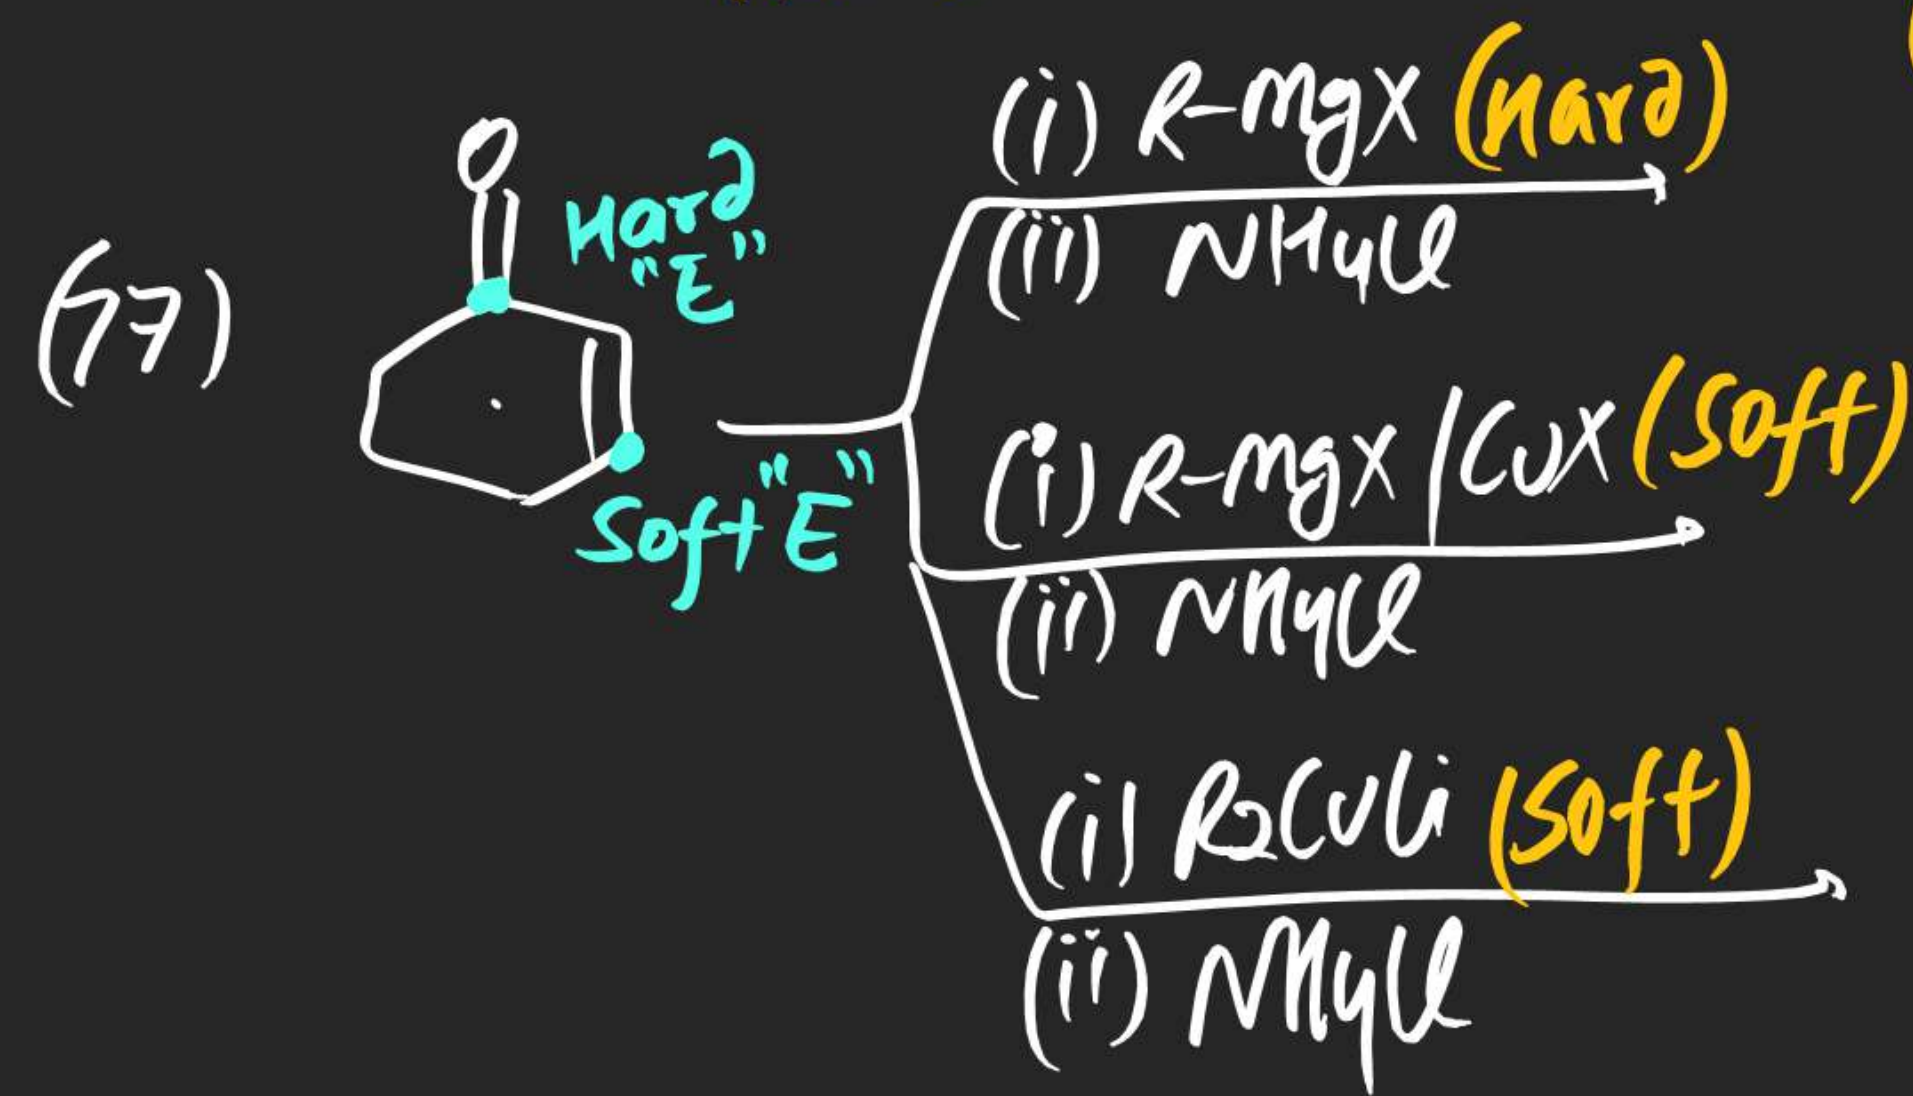 (77)
O
Hard
"E"
Soft "E"
(i) R-MgX (Hard)
(ii) NH4Cl
(i) R-MgX / CuX (Soft)
(ii) NH4Cl
(i) R2CuLi (Soft)
(ii) NH4Cl